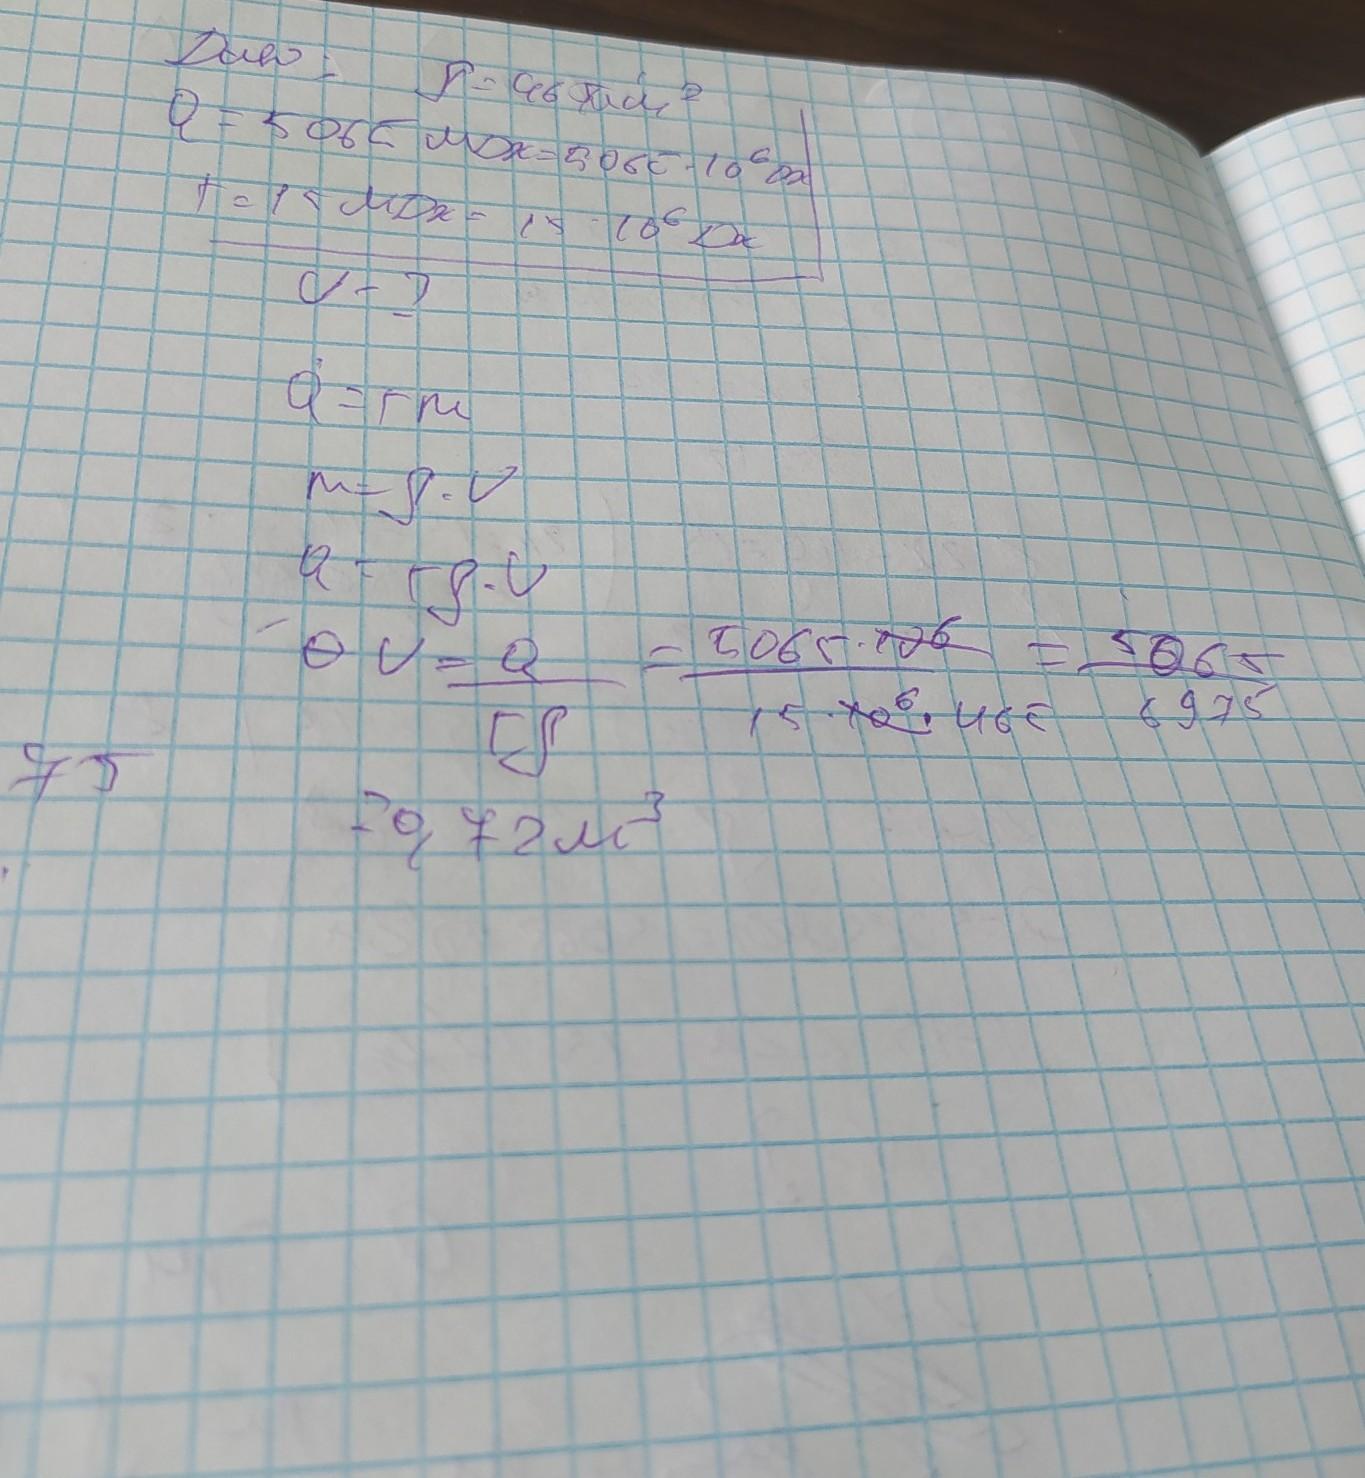 Дано: ρ=465кг/м³
Q = 5065 МДж=5065·10⁶Дж
r=15 МДж= 15·10⁶ Дж
V-?
Q=rm
m=ρ·V
Q=rρ·V
V=Q/rρ = 5065·10⁶/15·10⁶·465 = 5065/6975
75
=0,72м³